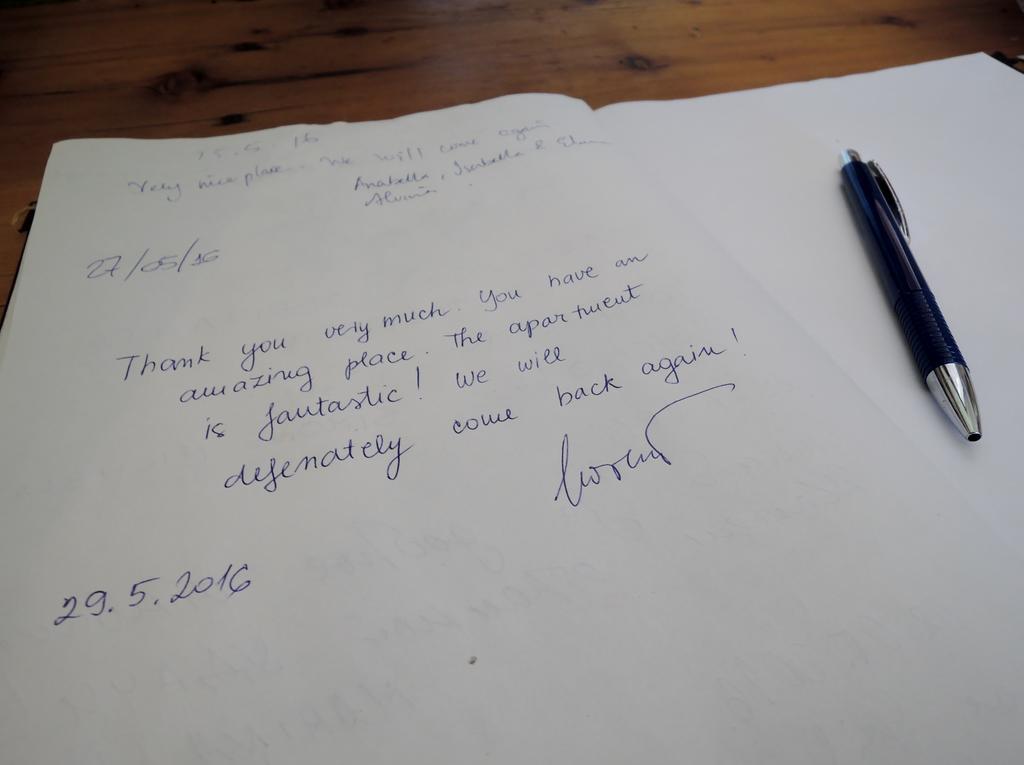 5.16
Very nice place. We will come again
Anabella, Isabella &
27/05/16
Thank you very much. You have an
amazing place. The apartment
is fantastic! We will
defenately come back again!
29.5.2016